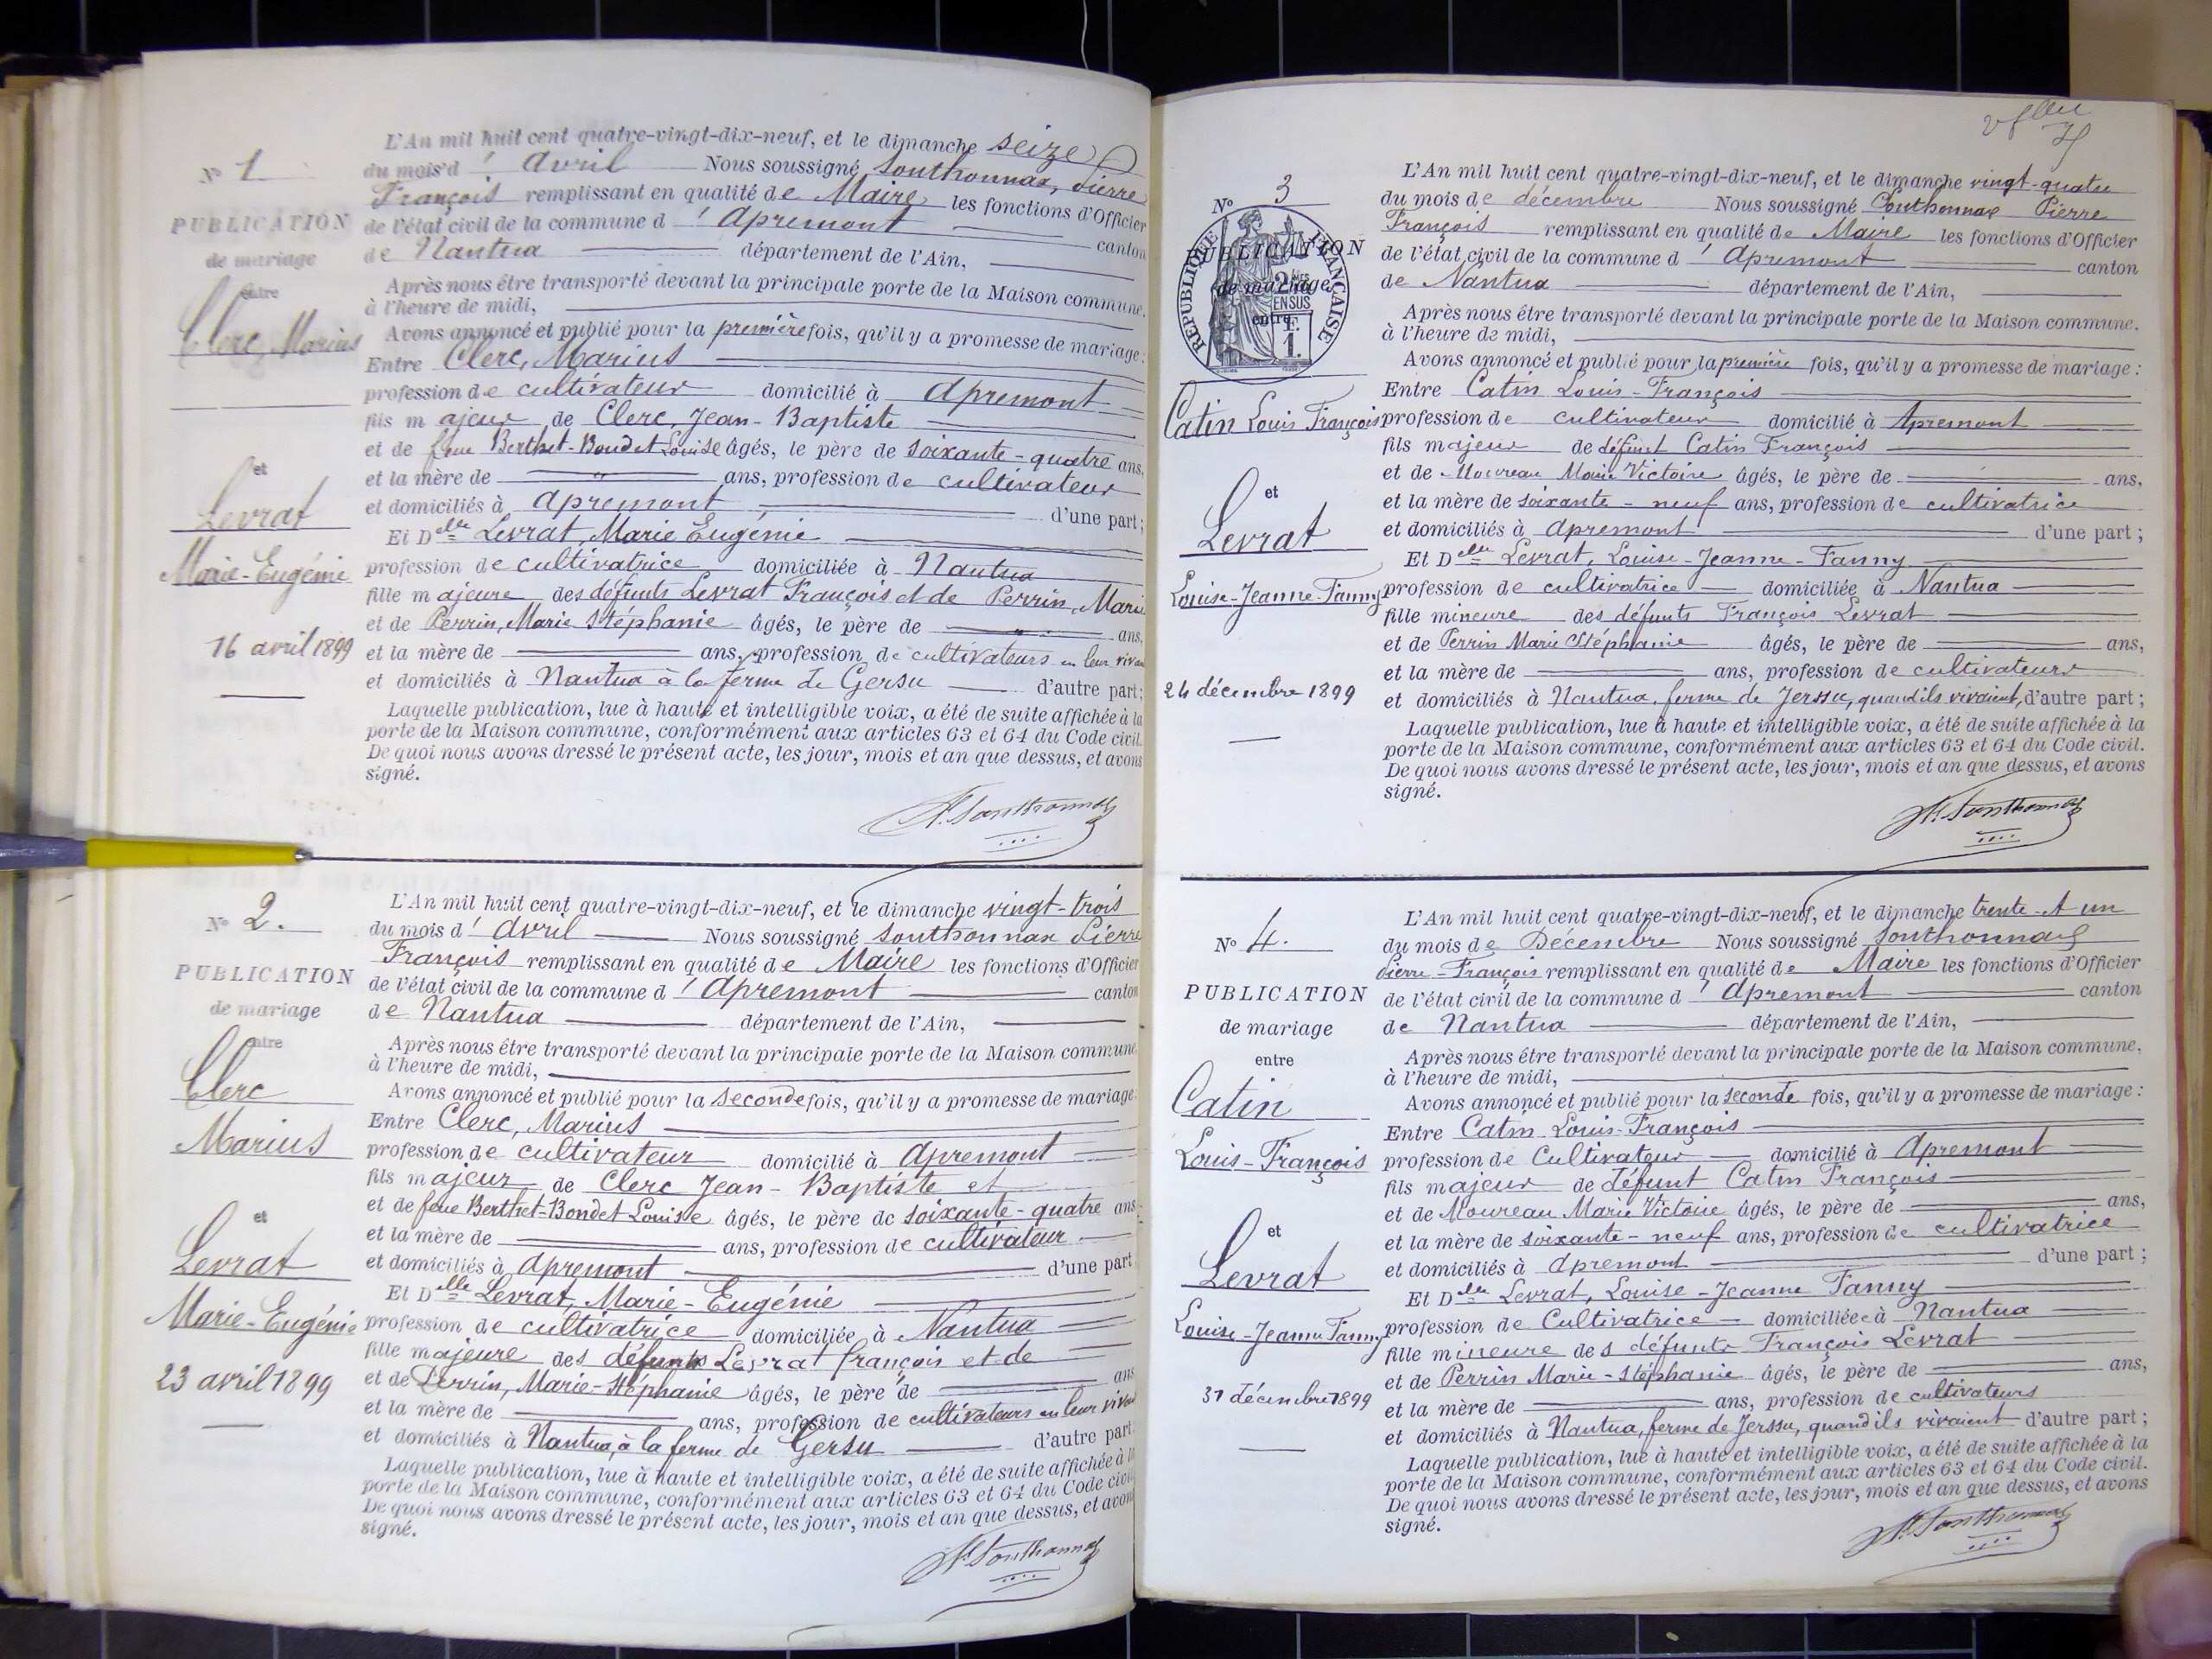 L'An mil huit cent quatre-vingt-dix-neuf, et le dimanche seize
du mois d' avril Nous soussigné Southonnax, Pierre
François remplissant en qualité de Maire les fonctions d'Officier
de l'état civil de la commune d' Apremont canton
de Nantua département de l'Ain,
Après nous être transporté devant la principale porte de la Maison commune,
à l'heure de midi,
Avons annoncé et publié pour la première fois, qu'il y a promesse de mariage :
Entre Clerc, Marius
profession de cultivateur domicilié à Apremont
fils majeur de Clerc, Jean-Baptiste
et de feue Berthet-Bondet Louise âgés, le père de soixante-quatre ans,
et la mère de ans, profession de cultivateur
et domiciliés à Apremont d'une part ;
Et Delle Levrat, Marie Eugénie
profession de cultivatrice domiciliée à Nantua
fille majeure des défunts Levrat François et de Perrin, Marie
et de Perrin, Marie Stéphanie âgés, le père de ans,
et la mère de ans, profession de cultivateurs en leur vivant
et domiciliés à Nantua à la ferme de Gersu d'autre part ;
Laquelle publication, lue à haute et intelligible voix, a été de suite affichée à la
porte de la Maison commune, conformément aux articles 63 et 64 du Code civil.
De quoi nous avons dressé le présent acte, les jour, mois et an que dessus, et avons
signé.
Southonnax
N° 1
PUBLICATION
de mariage
entre
Clerc, Marius
et
Levrat
Marie-Eugénie
16 avril 1899
L'An mil huit cent quatre-vingt-dix-neuf, et le dimanche vingt-trois
du mois d' Avril Nous soussigné Southonnax Pierre
François remplissant en qualité de Maire les fonctions d'Officier
de l'état civil de la commune d' Apremont canton
de Nantua département de l'Ain,
Après nous être transporté devant la principale porte de la Maison commune,
à l'heure de midi,
Avons annoncé et publié pour la seconde fois, qu'il y a promesse de mariage :
Entre Clerc, Marius
profession de cultivateur domicilié à Apremont
fils majeur de Clerc Jean-Baptiste et
et de feue Berthet-Bondet Louise âgés, le père de soixante-quatre ans
et la mère de ans, profession de cultivateur
et domiciliés à Apremont d'une part
Et Delle Levrat, Marie-Eugénie
profession de cultivatrice domiciliée à Nantua
fille majeure des défunts Levrat françois et de
et de Perrin, Marie-Stéphanie âgés, le père de ans
et la mère de ans, profession de cultivateurs en leur vivant
et domiciliés à Nantua, à la ferme de Gersu d'autre part
Laquelle publication, lue à haute et intelligible voix, a été de suite affichée à la
porte de la Maison commune, conformément aux articles 63 et 64 du Code civil
De quoi nous avons dressé le présent acte, les jour, mois et an que dessus, et avons
signé.
Southonnax
N° 2.
PUBLICATION
de mariage
entre
Clerc
Marius
et
Levrat
Marie-Eugénie
23 avril 1899
L'An mil huit cent quatre-vingt-dix-neuf, et le dimanche vingt-quatre
du mois de décembre Nous soussigné Southonnax Pierre
François remplissant en qualité de Maire les fonctions d'Officier
de l'état civil de la commune d' Apremont canton
de Nantua département de l'Ain,
Après nous être transporté devant la principale porte de la Maison commune,
à l'heure de midi,
Avons annoncé et publié pour la première fois, qu'il y a promesse de mariage :
Entre Catin Louis-François
profession de cultivateur domicilié à Apremont
fils majeur de défunt Catin François
et de Moureau Marie Victoire âgés, le père de ans,
et la mère de soixante-neuf ans, profession de cultivatrice
et domiciliés à Apremont d'une part ;
Et Delle Levrat, Louise-Jeanne-Fanny
profession de cultivatrice domiciliée à Nantua
fille mineure des défunts François Levrat
et de Perrin Marie Stéphanie âgés, le père de ans,
et la mère de ans, profession de cultivateurs
et domiciliés à Nantua, ferme de Jerssu, quand ils vivaient, d'autre part ;
Laquelle publication, lue à haute et intelligible voix, a été de suite affichée à la
porte de la Maison commune, conformément aux articles 63 et 64 du Code civil.
De quoi nous avons dressé le présent acte, les jour, mois et an que dessus, et avons
signé.
Southonnax
N° 3
PUBLICATION
de mariage
entre
RÉPUBLIQUE FRANÇAISE
2
EN SUS
1.
Catin Louis François
et
Levrat
Louise-Jeanne-Fanny
24 décembre 1899
L'An mil huit cent quatre-vingt-dix-neuf, et le dimanche trente et un
du mois de Décembre Nous soussigné Southonnax
Pierre-François remplissant en qualité de Maire les fonctions d'Officier
de l'état civil de la commune d' Apremont canton
de Nantua département de l'Ain,
Après nous être transporté devant la principale porte de la Maison commune,
à l'heure de midi,
Avons annoncé et publié pour la seconde fois, qu'il y a promesse de mariage :
Entre Catin Louis-François
profession de Cultivateur domicilié à Apremont
fils majeur de défunt Catin François
et de Moureau Marie Victoire âgés, le père de ans,
et la mère de soixante-neuf ans, profession de cultivatrice
et domiciliés à Apremont d'une part ;
Et Delle Levrat, Louise-Jeanne Fanny
profession de Cultivatrice domiciliée à Nantua
fille mineure des défunts François Levrat
et de Perrin Marie-Stéphanie âgés, le père de ans,
et la mère de ans, profession de cultivateurs
et domiciliés à Nantua, ferme de Jerssu, quand ils vivaient d'autre part ;
Laquelle publication, lue à haute et intelligible voix, a été de suite affichée à la
porte de la Maison commune, conformément aux articles 63 et 64 du Code civil.
De quoi nous avons dressé le présent acte, les jour, mois et an que dessus, et avons
signé.
Southonnax
N° 4.
PUBLICATION
de mariage
entre
Catin
Louis-François
et
Levrat
Louise-Jeanne Fanny
31 décembre 1899